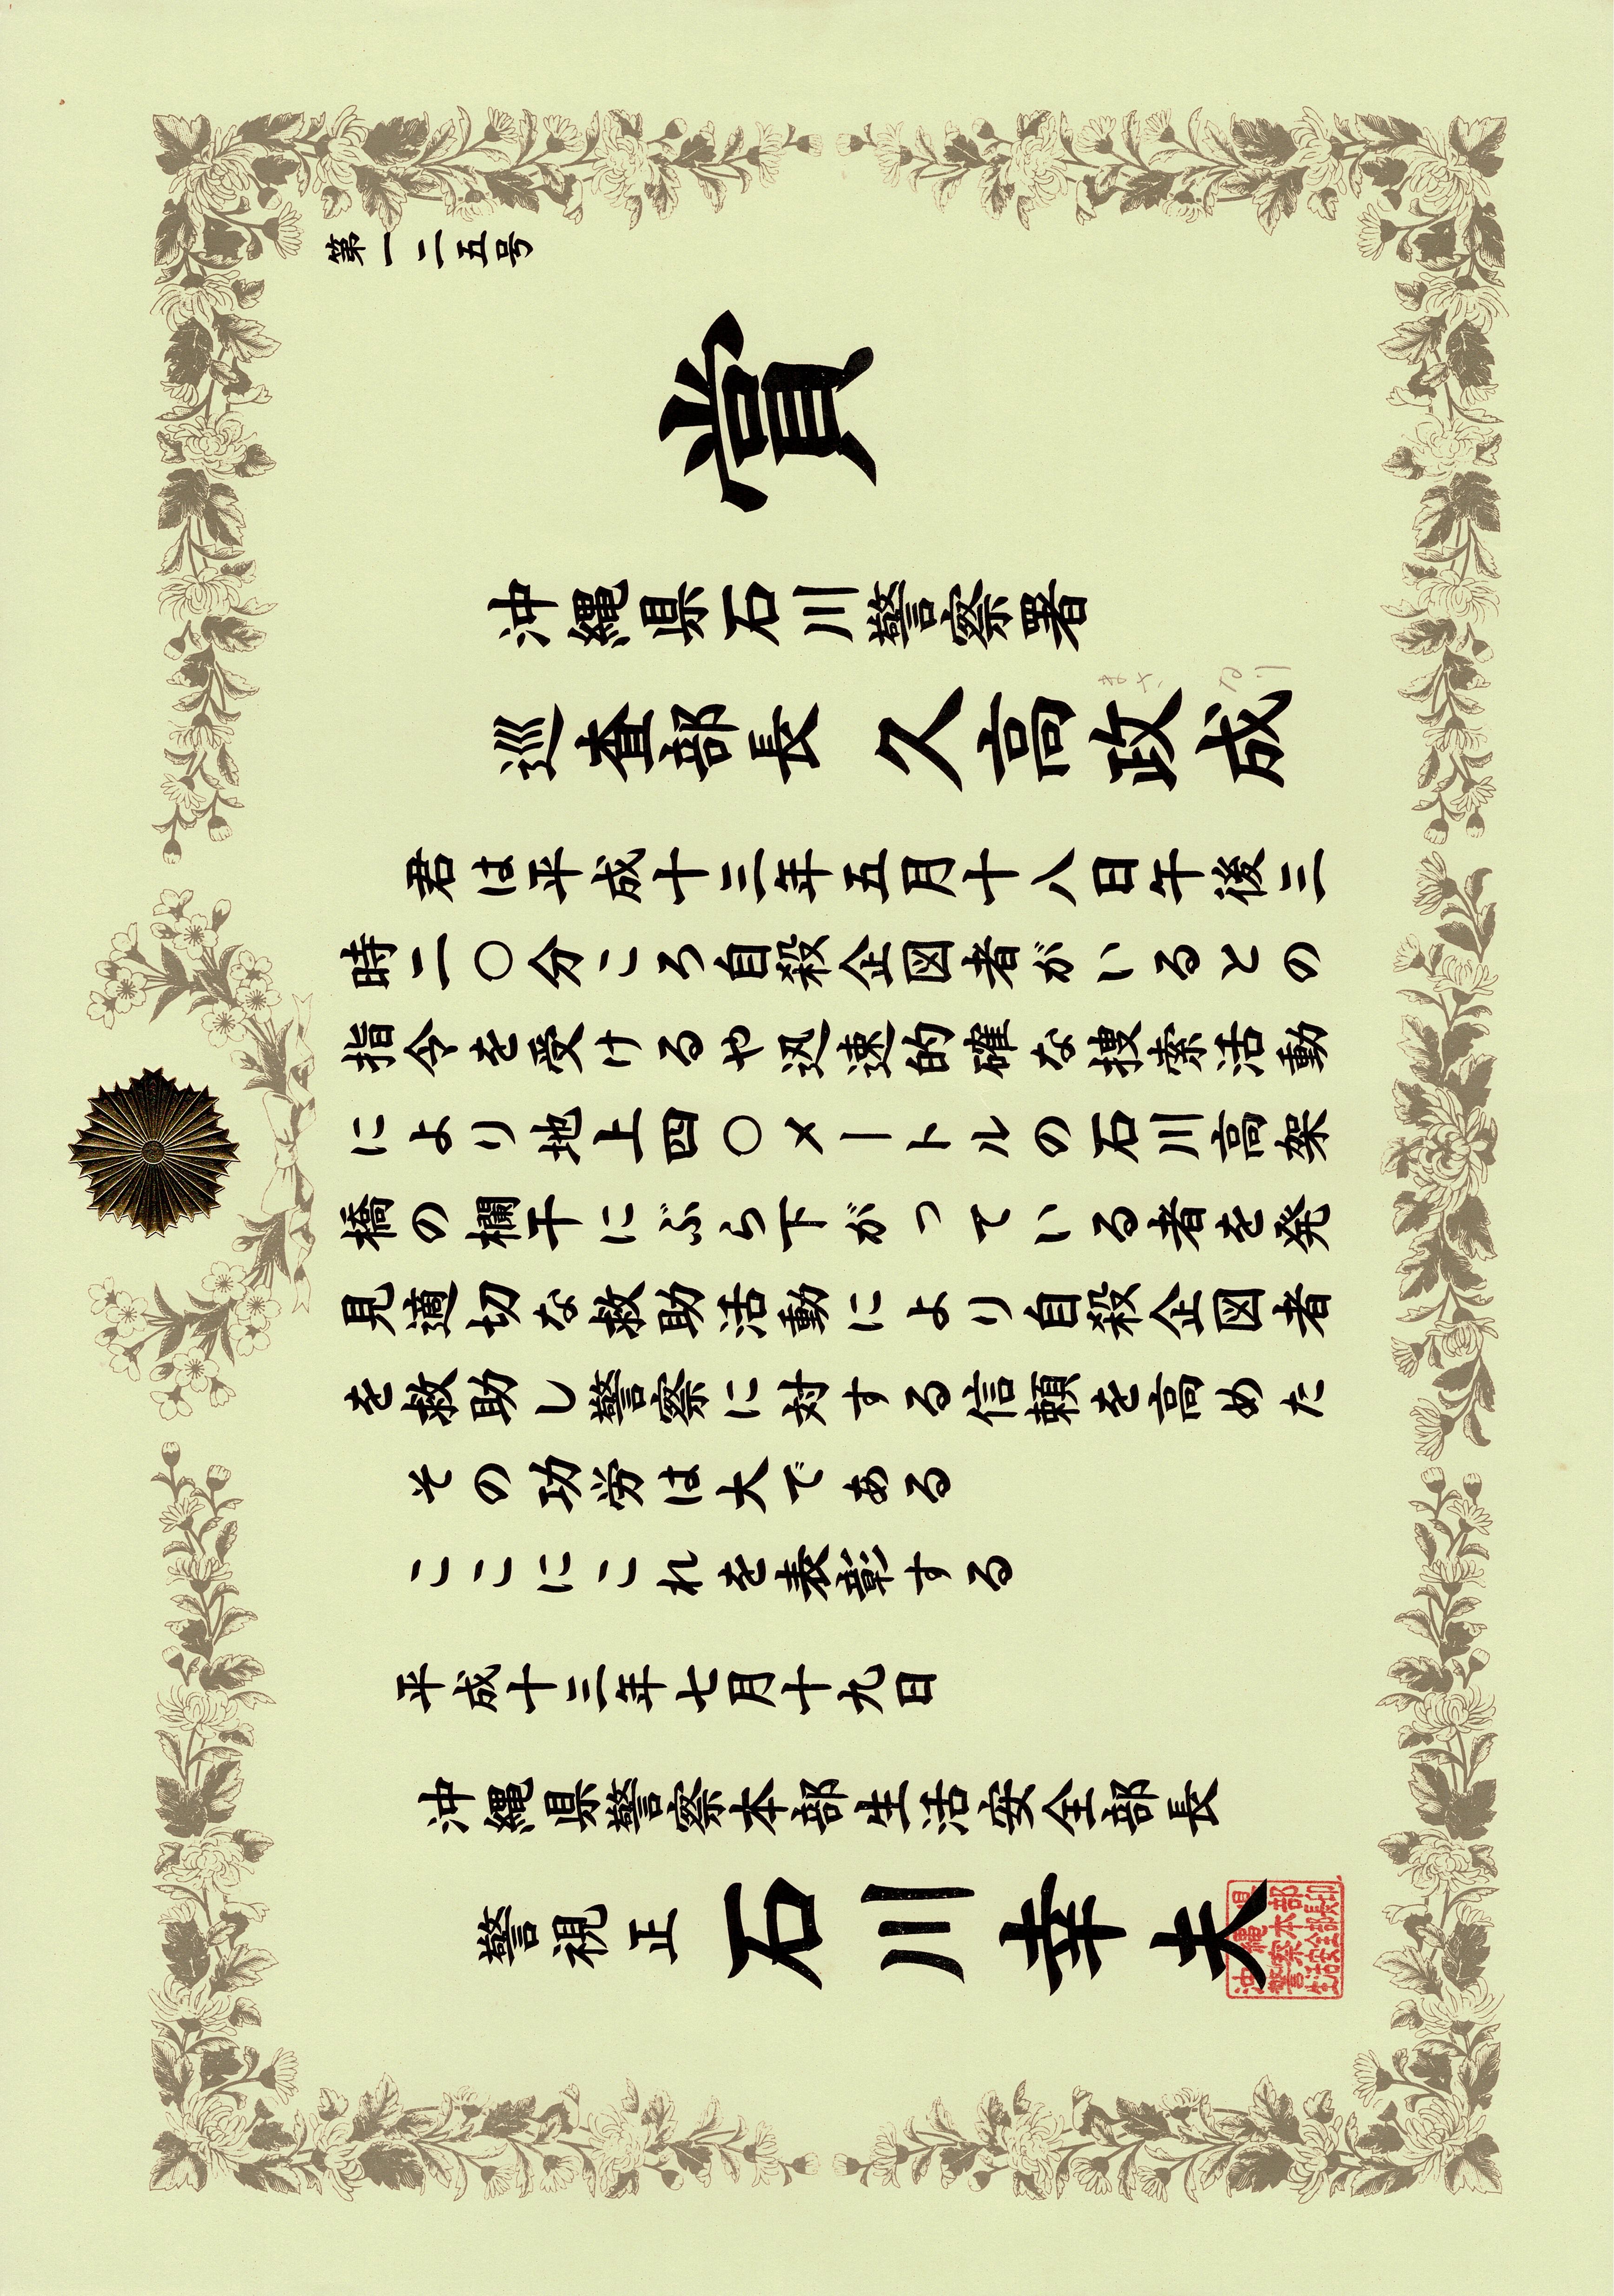 第一二五号
賞
沖縄県石川警察署
巡査部長 久高政成
君は平成十三年五月十八日午後三
時二〇分ころ自殺企図者がいるとの
指令を受けるや迅速的確な捜索活動
により地上四〇メートルの石川高架
橋の欄干にぶら下がっている者を発
見適切な救助活動により自殺企図者
を救助し警察に対する信頼を高めた
その功労は大である
ここにこれを表彰する
平成十三年七月十九日
沖縄県警察本部生活安全部長
警視正 石川幸夫
沖縄県
警察本部
生活安全部長印